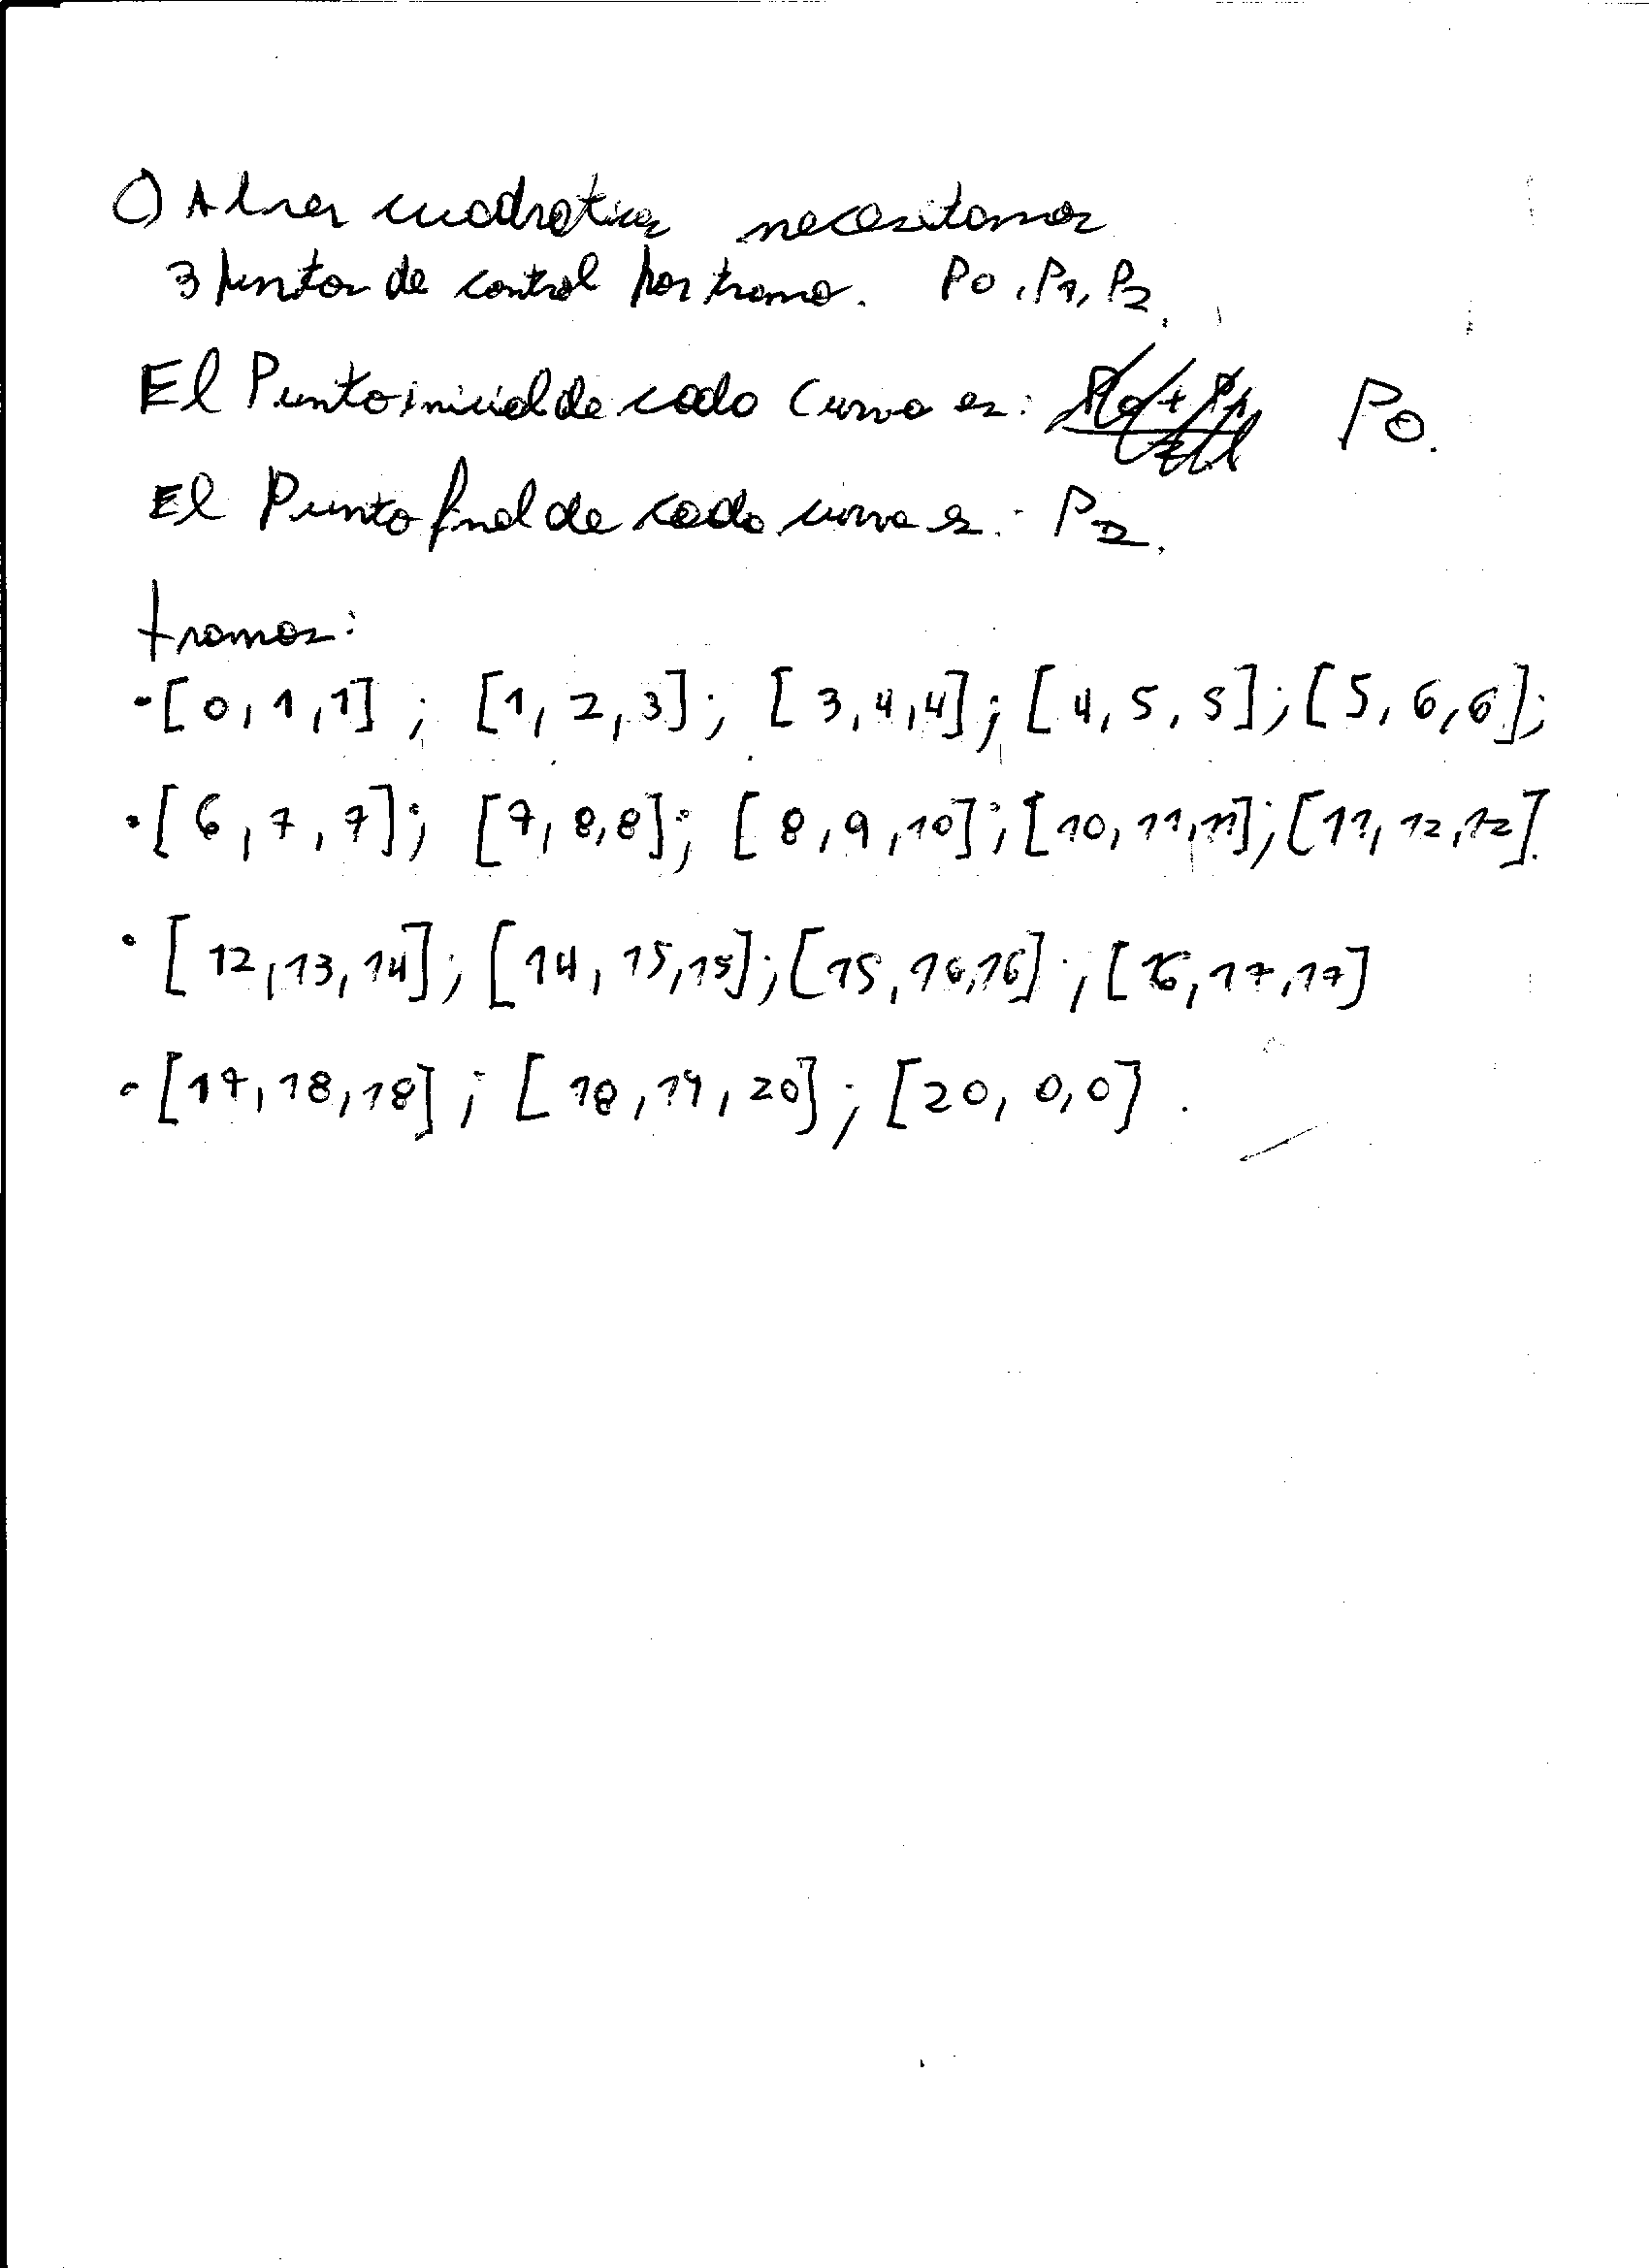 C) Al ser cuadratica necesitamos
3 puntos de control por tramo. P0, P1, P2.
El Punto inicial de cada curva es: P0.
El Punto final de cada curva es: P2.
tramos:
-[0,1,1]; [1,2,3]; [3,4,4]; [4,5,5]; [5,6,6];
•[6,7,7]; [7,8,8]; [8,9,10]; [10,11,11]; [11,12,12].
•[12,13,14]; [14,15,15]; [15,16,16]; [16,17,17]
-[17,18,18]; [18,19,20]; [20,0,0].